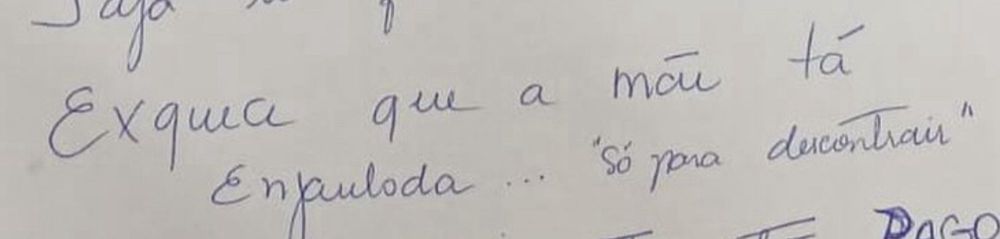 Exquça que a mãe tá
Enjauloda ... "só para descontrair"
PAGO